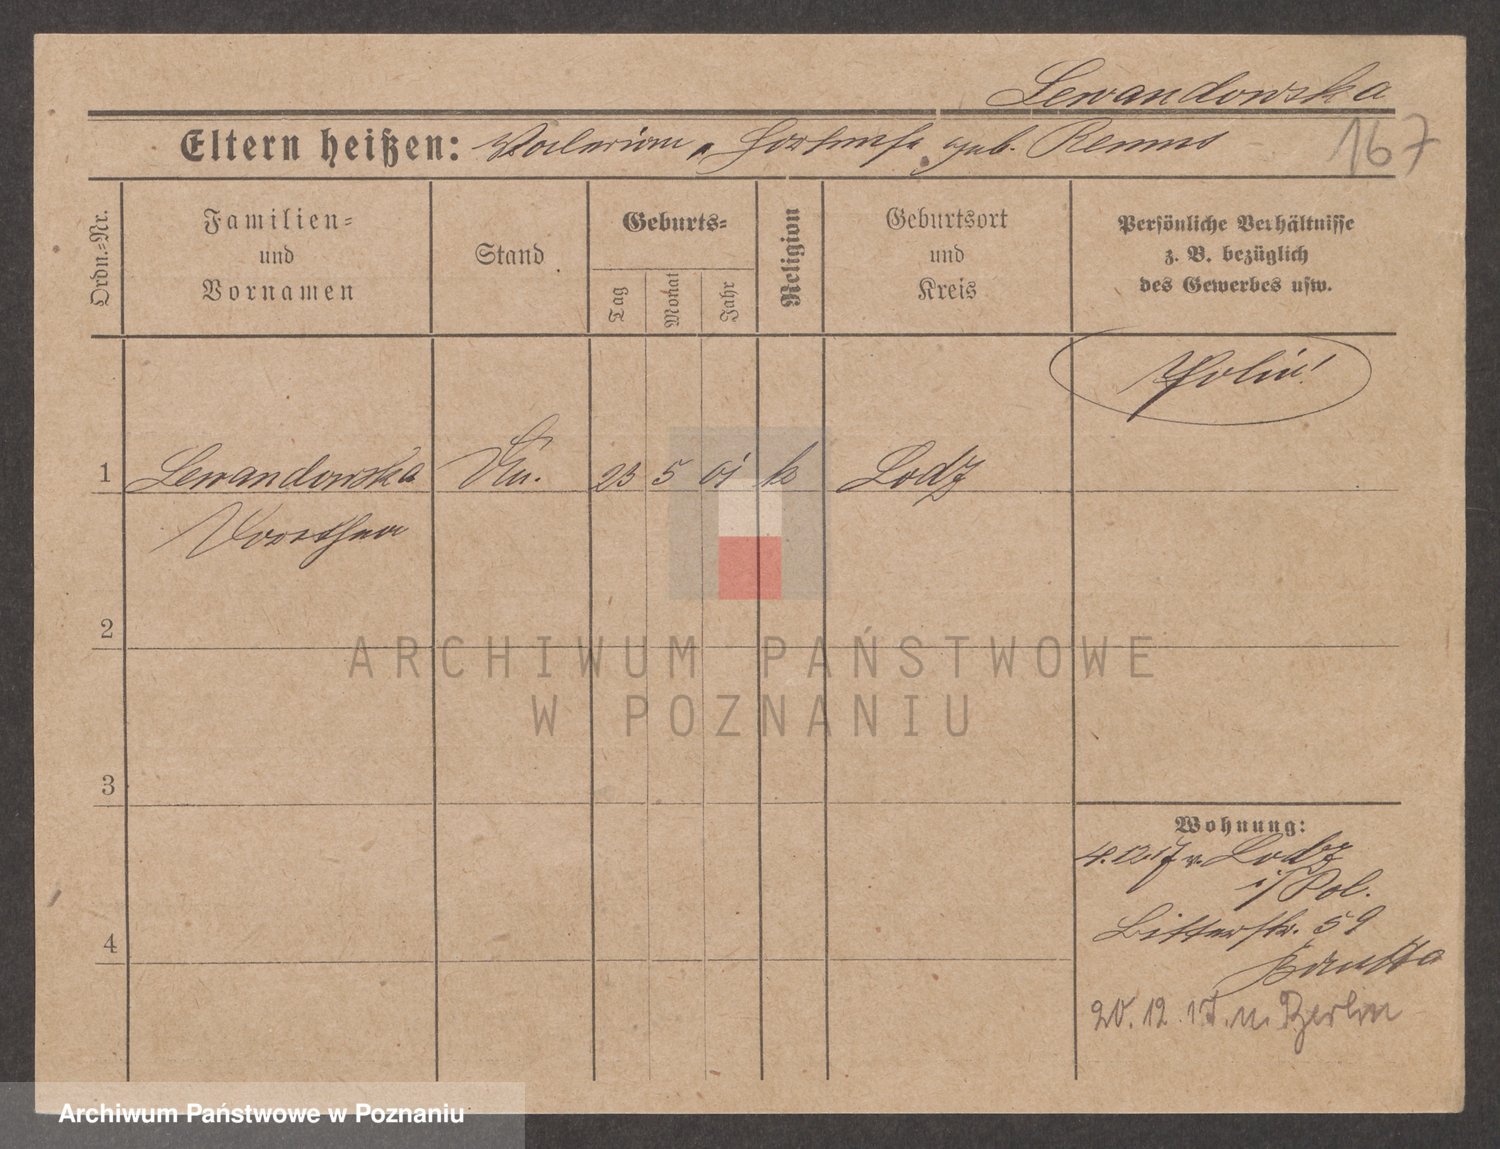 Lewandowska
Eltern heißen: geb. Remus
167
Ordn.-Nr.
Familien-
und
Vornamen
Stand
Geburts-
Tag
Monat
Jahr
Religion
Geburtsort
und
Kreis
Persönliche Verhältnisse
z. B. bezüglich
des Gewerbes usw.
1 Lewandowska 23 5 01 k Lodz
2
3
4
Wohnung:
4.12.17 v. Lodz
i/Pol.
Bitterstr. 59
20.12.17. n. Berlin
ARCHIWUM PAŃSTWOWE
W POZNANIU
Archiwum Państwowe w Poznaniu